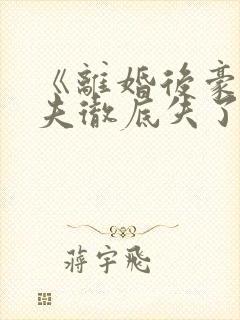 《離婚後豪
夫徹底失了
蔣宇飛